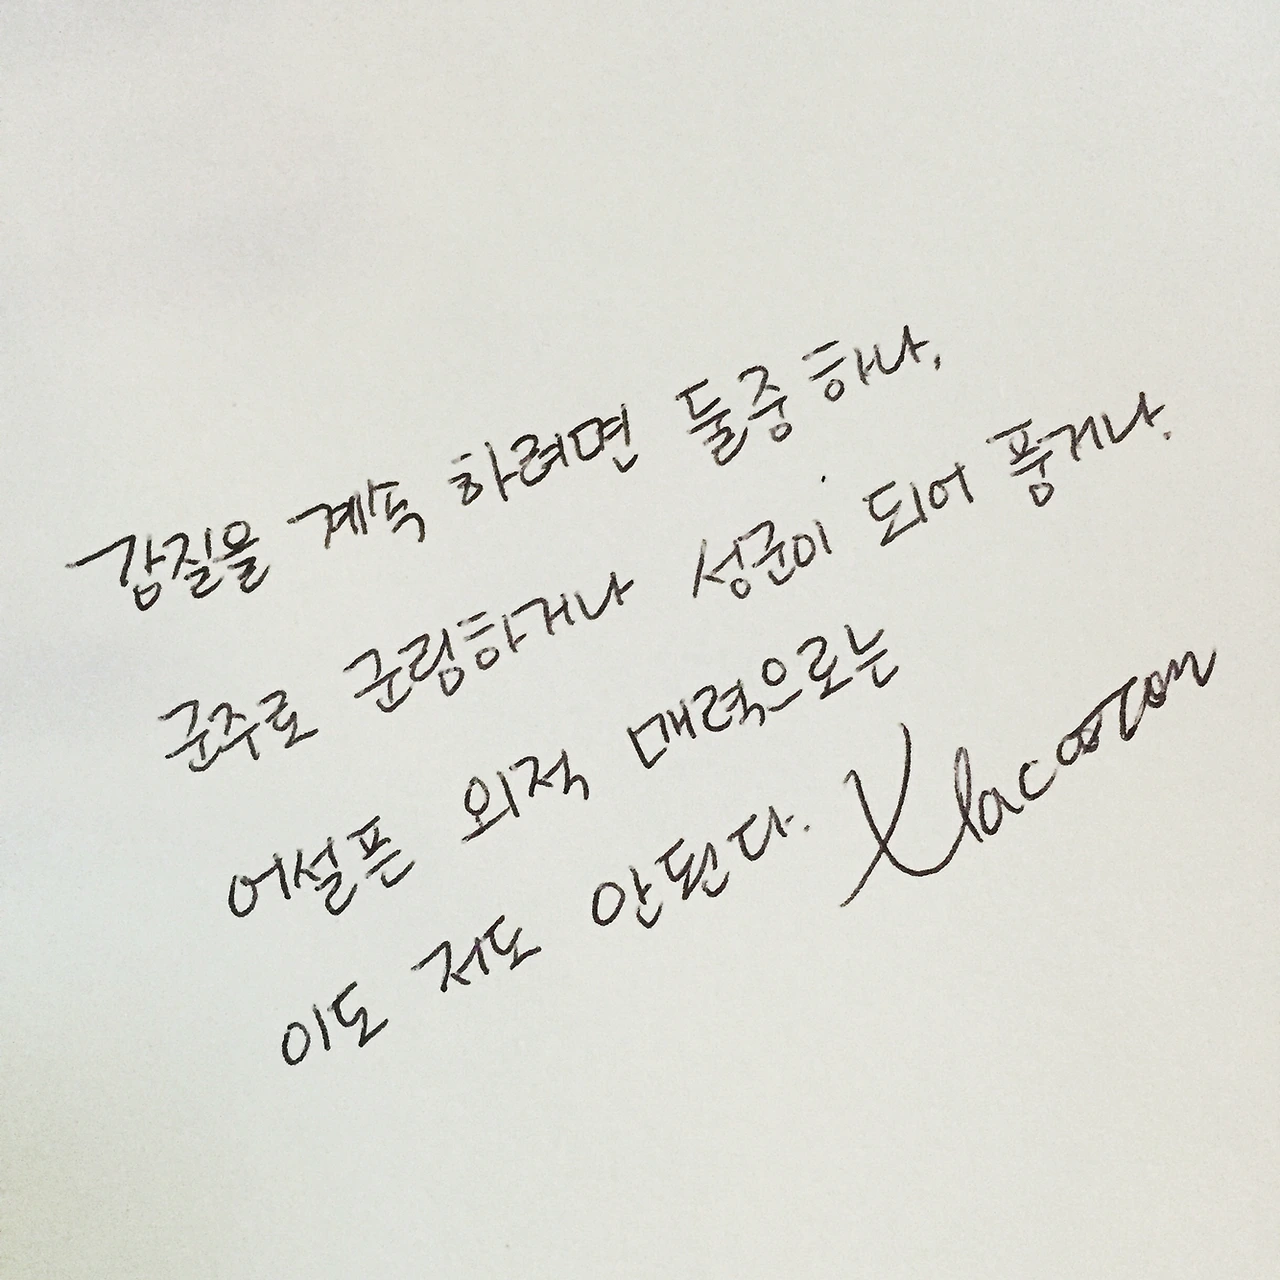 갑질을 계속 하려면 둘중 하나.
군주로 군림하거나 성군이 되어 품거나.
어설픈 외적 매력으로는
이도 저도 안된다.